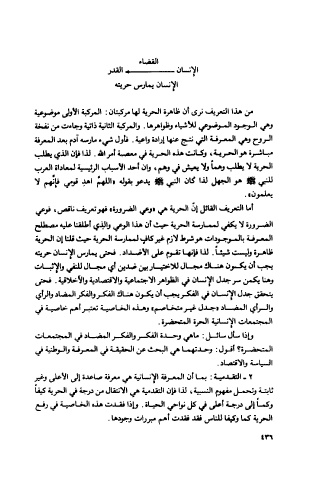 القضاء
الإنسان ـــــــــــ القدر
الإنسان يمارس حريته
من هذا التعريف نرى أن ظاهرة الحرية لها مركبتان: المركبة الأولى موضوعية
وهي الوجود الموضوعي للأشياء وظواهرها. والمركبة الثانية ذاتية وجاءت من نفخة
الروح وهي المعرفة التي تنتج عنها إرادة واعية. فأول شيء مارسه آدم بعد المعرفة
مباشرة هو الحرية، وكانت هذه الحرية في معصية أمر الله. لذا فإن الذي يطلب
الحرية لا يطلب وهماً ولا يعيش في وهم، وإن أحد الأسباب الرئيسية لمعاداة العرب
للنبي ﷺ هو الجهل لذا كان النبي ﷺ يدعو بقوله «اللهمّ اهدِ قومي فإنهم لا
يعلمون».
أما التعريف القائل إنّ الحرية هي «وعي الضرورة» فهو تعريف ناقص، فوعي
الضرورة لا يكفي لممارسة الحرية حيث أن هذا الوعي والذي أطلقنا عليه مصطلح
المعرفة بالموجودات هو شرط لازم غير كافٍ لممارسة الحرية حيث قلنا إن الحرية
ظاهرة وليست شيئاً. لذا فإنها تقوم على الأضداد. فحتى يمارس الإنسان حريته
يجب أن يكون هناك مجال للاختيار بين ضدين أي مجال للنفي والإثبات
وهنا يكمن سر جدل الإنسان في الظواهر الاجتماعية والاقتصادية والأخلاقية. فحتى
يتحقق جدل الإنسان في الفكر يجب أن يكون هناك الفكر والفكر المضاد والرأي
والرأي المضاد «جدل غير متخاصم» وهذه الخاصية تعتبر أهم خاصية في
المجتمعات الإنسانية الحرة المتحضرة.
وإذا سأل سائل: ماهي وحدة الفكر والفكر المضاد في المجتمعات
المتحضرة؟ أقول: وحدتهما هي البحث عن الحقيقة في المعرفة والوطنية في
السياسة والاقتصاد.
٢ ـ التقدمية: بما أن المعرفة الإنسانية هي معرفة صاعدة إلى الأعلى وغير
ثابتة وتحمل مفهوم النسبية، لذا فإن التقدمية هي الانتقال من درجة في الحرية كيفاً
وكماً إلى درجة أعلى في كل نواحي الحياة. وإذا فقدت هذه الخاصية في رفع
الحرية كما وكيفا للناس فقد فقدت أهم مبررات وجودها.
٤٣٦